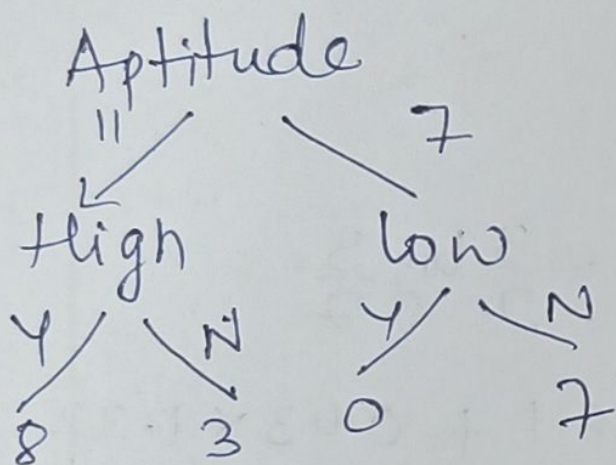 Aptitude
11 7
High low
Y N Y N
8 3 0 7